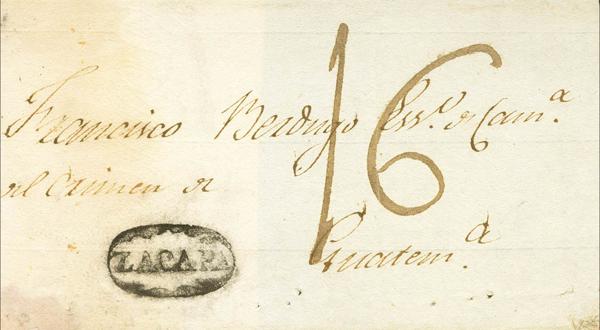 Francisco Berdugo Ess.º de Cam.ª
del Crimen de
16
Guatem.ª
ZACAPA